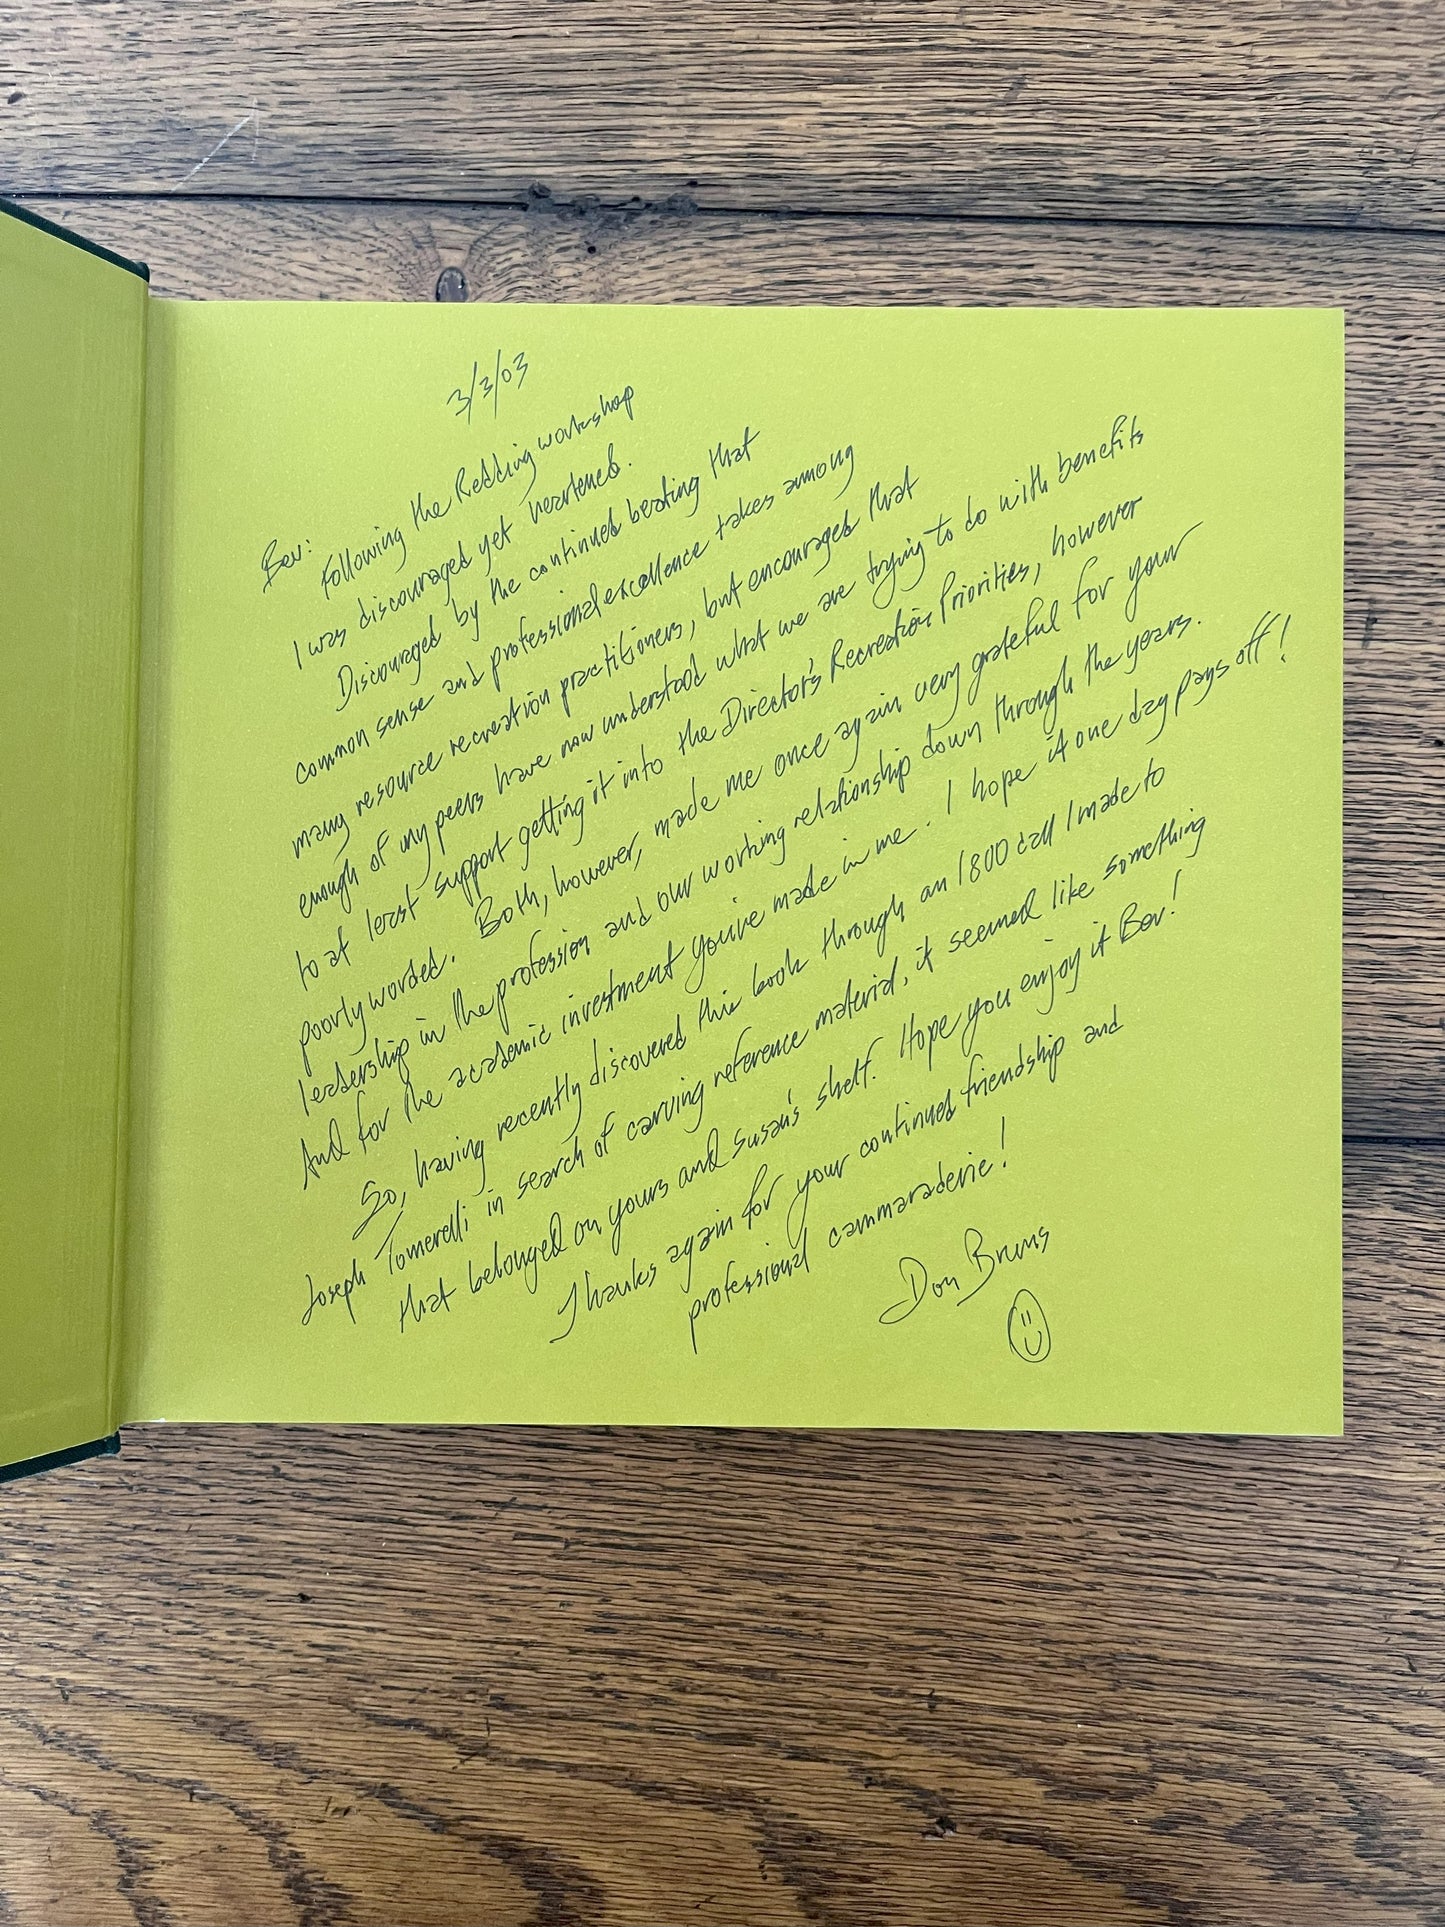 3/3/03
Bev:
Following the Redding workshop
I was discouraged yet heartened.
Discouraged by the continued beating that
common sense and professional excellence takes among
many resource recreation practitioners, but encouraged that
enough of my peers have now understood what we are trying to do with benefits
to at least support getting it into the Director's Recreation Priorities, however
poorly worded. Both, however, made me once again very grateful for your
leadership in the profession and our working relationship down through the years.
And for the academic investment you've made in me. I hope it one day pays off!
So, having recently discovered this book through an 1800 call I made to
Joseph Tomerelli in search of carving reference material, it seemed like something
that belonged on yours and Susan's shelf. Hope you enjoy it Bev!
Thanks again for your continued friendship and
professional cammaraderie!
Don Bruns